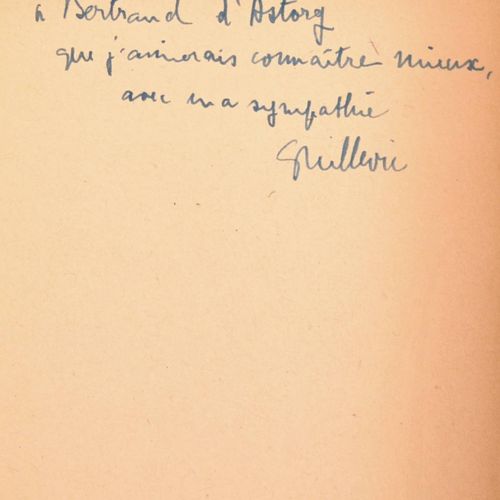 à Bertrand d'Astorg
que j'aimerais connaître mieux,
avec ma sympathie
Guillevic